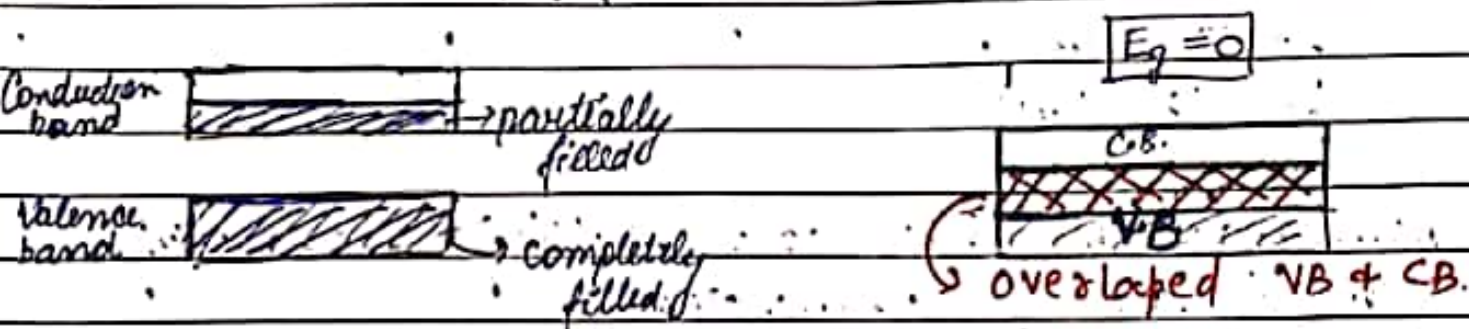 Conduction
band
→partially
filled
Valence
band
→ completely
filled.
Eg =0
C.B.
V.B
overlaped VB & CB.